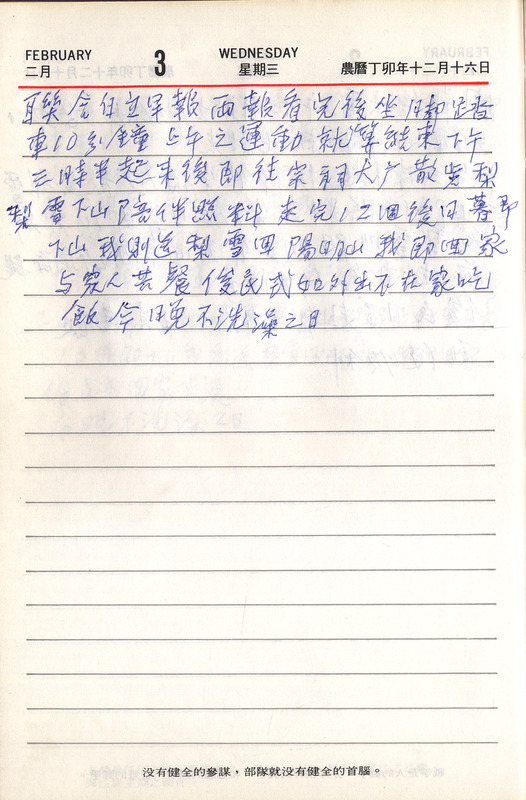 FEBRUARY 3 WEDNESDAY
二月 星期三 農曆丁卯年十二月十六日
聯合自立早報兩報看完後坐腳踏
車10分鐘上午之運動就算結束下午
三時半起來後即往宗祠大广散步梨
梨雪下山陪伴照料走完12個後日暮即
下山我則送梨雪回陽明山我即回家
与家人共餐俊民武如外出不在家吃
飯今晚不洗澡之日
没有健全的參謀，部隊就没有健全的首腦。